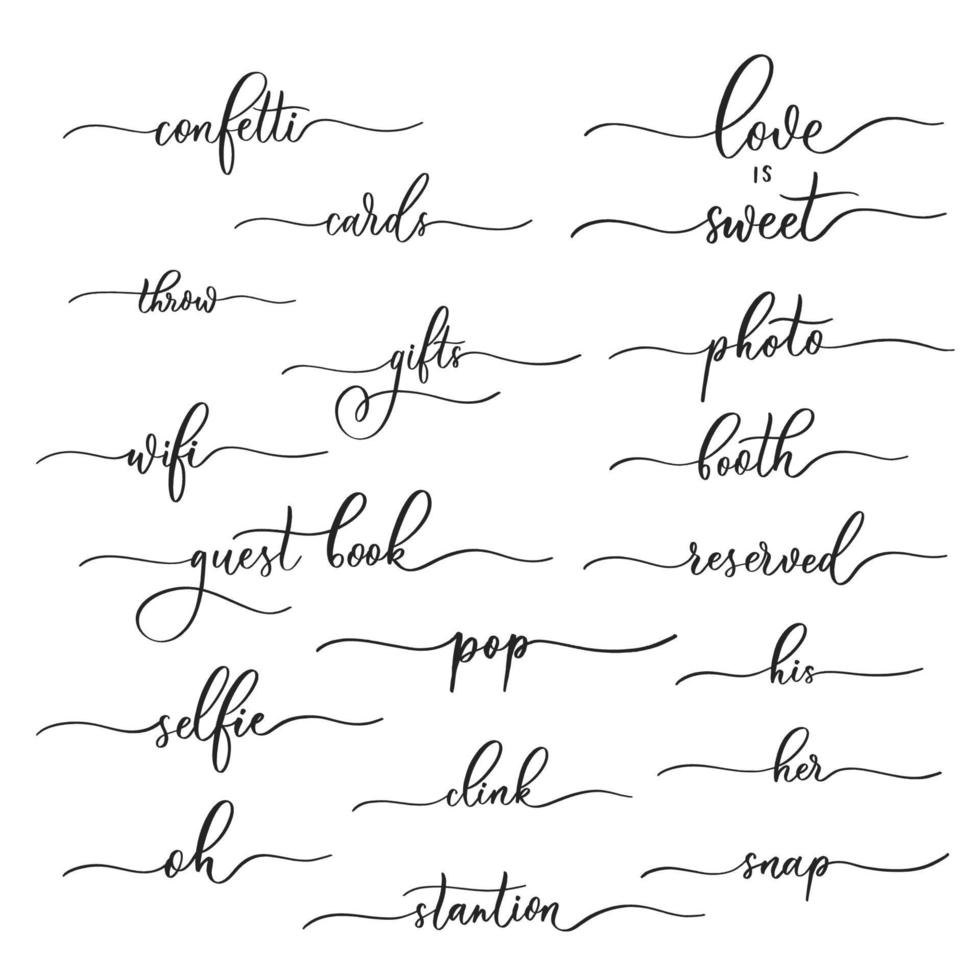 confetti
love
is
cards
sweet
throw
gifts
photo
wifi
booth
guest book
reserved
pop
his
selfie
clink
her
oh
snap
stantion